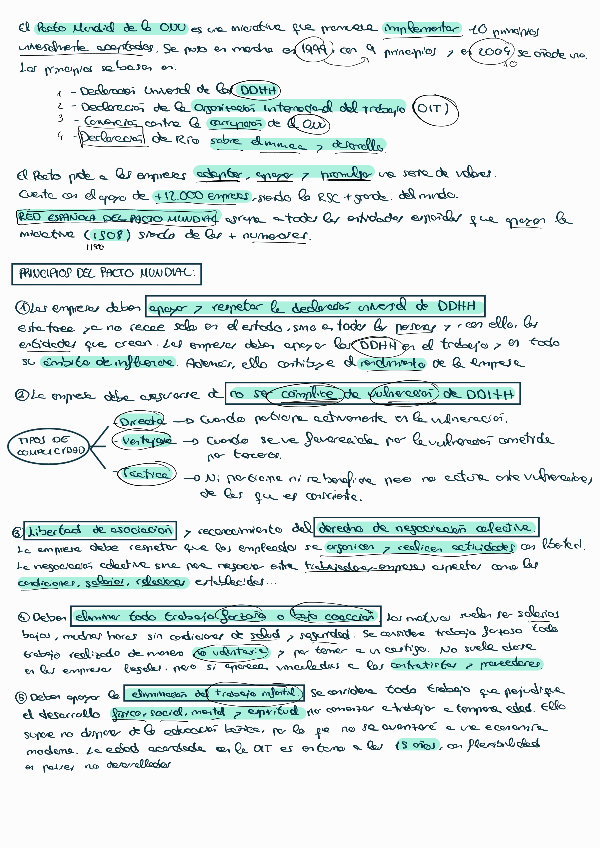 El Pacto Mundial de la ONU es una iniciativa que promueve implementar 10 principios
universalmente aceptados. Se puso en marcha en 1999, con 9 principios y en 2004 se añade uno.
10
Los principios se basan en:
1 - Declaración Universal de los DDHH
2 - Declaración de la Organización Internacional del trabajo (OIT)
3 - Convención contra la corrupción de la ONU
4 - Declaración de Río sobre el y desarrollo
El Pacto pide a las empresas adoptar, apoyar y promulgar una serie de valores.
Cuenta con el apoyo de +12.000 empresas, siendo la RSC + grande del mundo.
RED ESPAÑOLA DEL PACTO MUNDIAL agrupa a todas las entidades españolas que apoyan la
iniciativa (1508) siendo de las + numerosas.
PRINCIPIOS DEL PACTO MUNDIAL:
① Las empresas deben apoyar y respetar la declaración universal de DDHH
esta tarea ya no recae solo en el estado, sino en todas las personas y con ello, las
entidades que crean. Las empresas deben apoyar los DDHH en el trabajo y en todo
su ámbito de influencia. Además, ello contribuye al rendimiento de la empresa
② La empresa debe asegurarse de no ser cómplice de vulneración de DDHH
- Directa → Cuando participa activamente en la vulneración.
TIPOS DE COMPLICIDAD
- Ventajosa → Cuando se ve favorecida por la vulneración cometida
por terceros.
- Táctica → Ni participa ni se beneficia pero no actúa ante vulneraciones,
de las que es consciente.
③ Libertad de asociación y reconocimiento del derecho de negociación colectiva.
La empresa debe respetar que los empleados se organicen y realicen actividades con libertad.
La negociación colectiva sirve para negociar entre trabajadores-empresa aspectos como las
condiciones, salarios, relaciones establecidas...
④ Deben eliminar todo trabajo forzoso o bajo coacción los motivos suelen ser salarios
bajos, muchas horas sin condiciones de salud y seguridad. Se considera trabajo forzoso todo
trabajo realizado de manera no voluntaria y por temer a un castigo. No suele darse
en las empresas legales, pero sí aparece vinculadas a los contratistas y proveedores
⑤ Deben apoyar la eliminación del trabajo infantil Se considera todo trabajo que perjudique
el desarrollo físico, social, mental y espiritual por comenzar a trabajar a temprana edad. Ello
supone no disponer de la educación básica, por lo que no se a una economía
moderna. La edad acordada en la OIT es en torno a los 15 años, con flexibilidad
en países no desarrollados